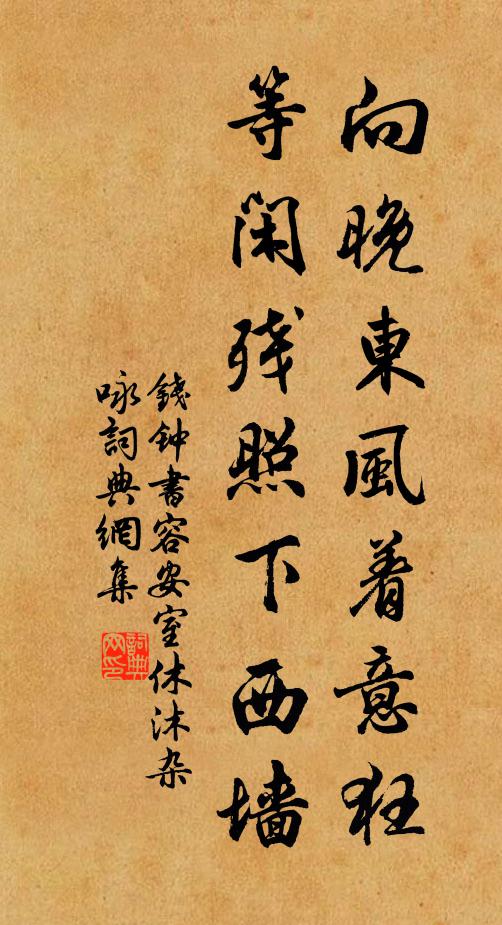 向晚東風着意狂
等閑残照下西墻
錢钟書容安室休沐杂
咏詞典網集
詞典网印